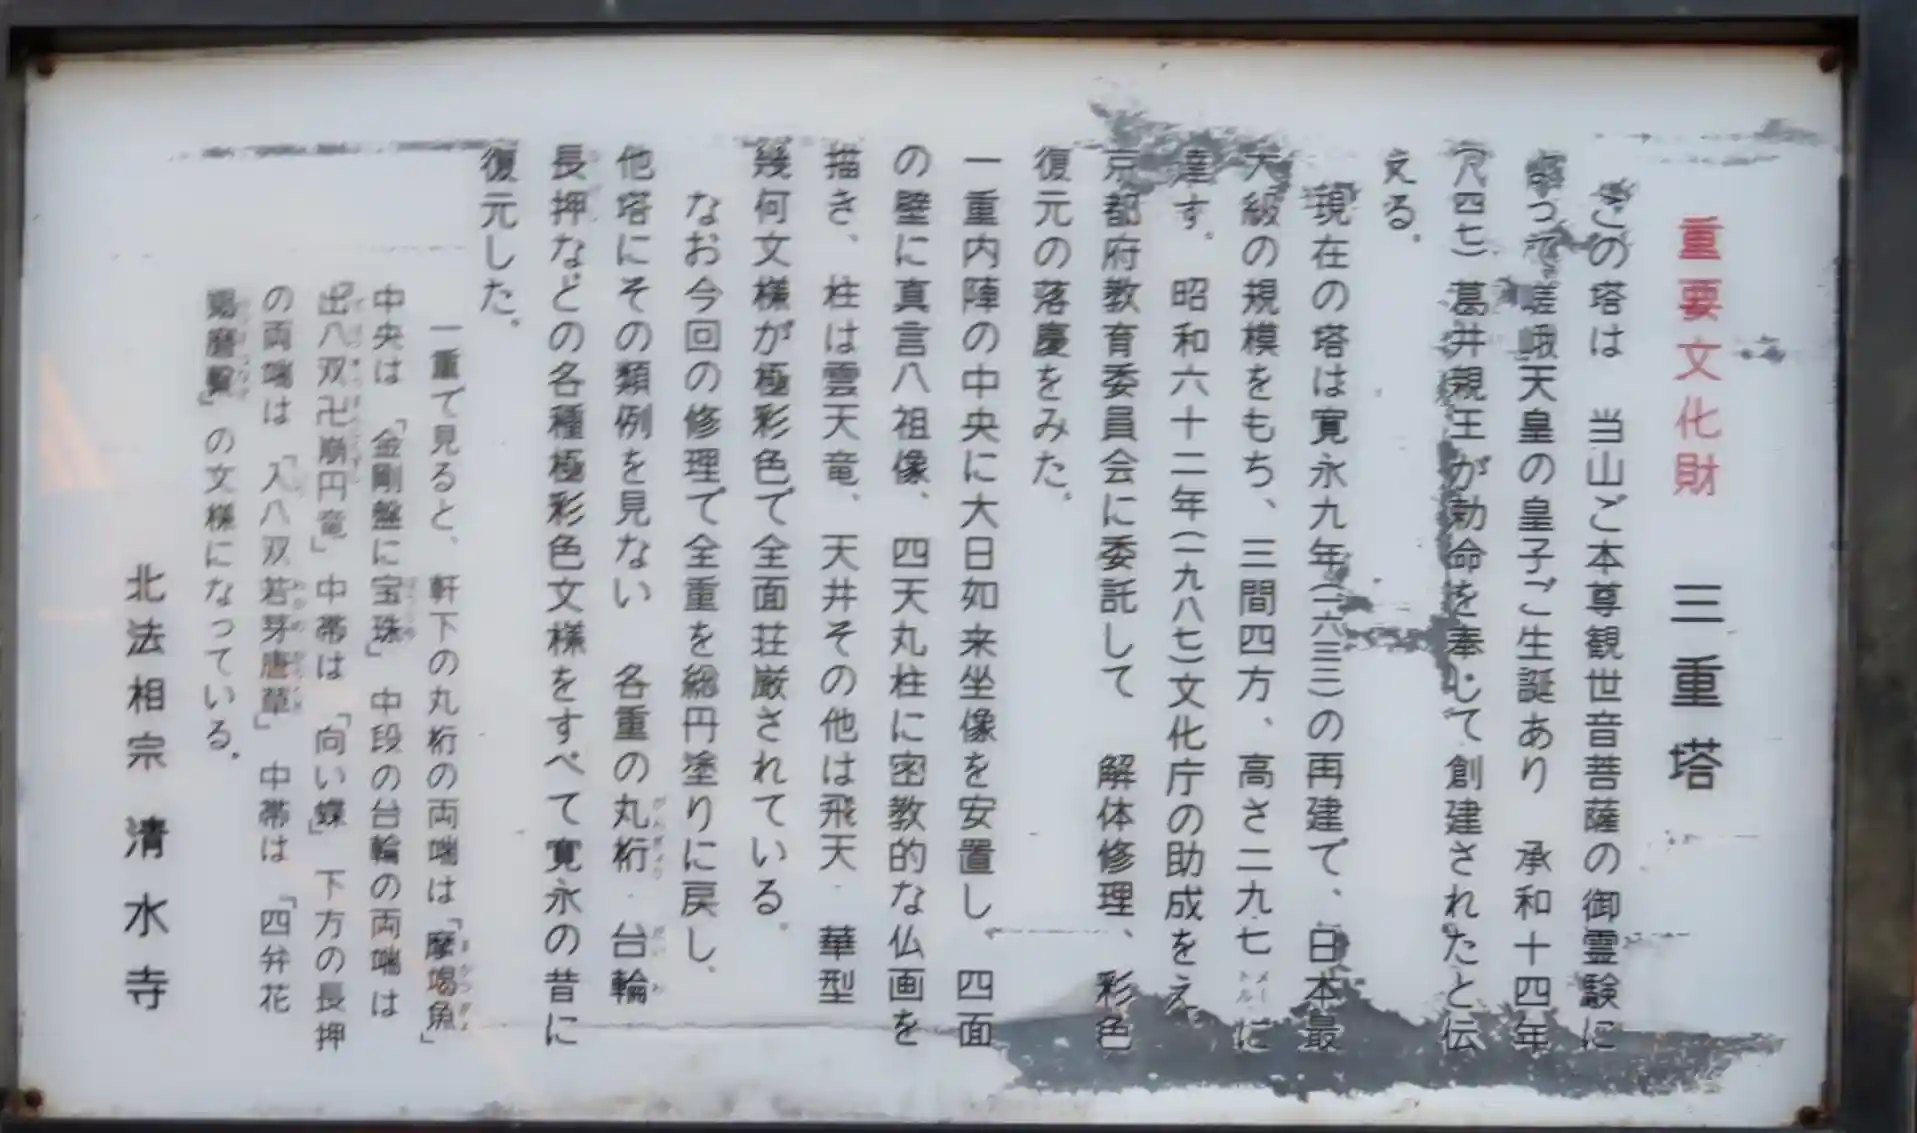 重要文化財 三重塔
この塔は 当山ご本尊観世音菩薩の御霊験に
よって嵯峨天皇の皇子ご生誕あり 承和十四年
(八四七)葛井親王が勅命を奉じて創建されたと伝
える。
現在の塔は寛永九年(一六三三)の再建で、日本最
大級の規模をもち、三間四方、高さ二九七メートルに
達す。昭和六十二年(一九八七)文化庁の助成をえ
京都府教育委員会に委託して 解体修理、彩色
復元の落慶をみた。
一重内陣の中央に大日如来坐像を安置し、四面
の壁に真言八祖像、四天丸柱に密教的な仏画を
描き、柱は雲天竜、天井その他は飛天・華型
幾何文様が極彩色で全面荘厳されている。
なお今回の修理で全重を総円塗りに戻し、
他塔にその類例を見ない 各重の丸桁・台輪
長押などの各種極彩色文様をすべて寛永の昔に
復元した。
一重で見ると、軒下の丸桁の両端は「摩竭魚」
中央は「金剛盤に宝珠」中段の台輪の両端は
「出八双卍崩円竜」中帯は「向い蝶」下方の長押
の両端は「入八双若芽唐草」中帯は「四弁花
羯磨繋」の文様になっている。
北法相宗 清水寺